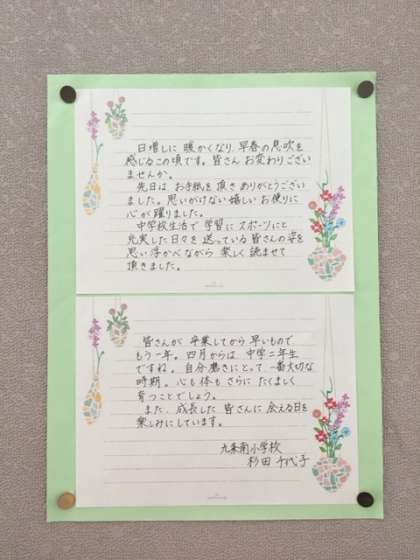 日増しに 暖かくなり 早春の息吹を
感じるこの頃です。皆さん お変わりござい
ませんか。
先日は お手紙を 頂き ありがとうござい
ました。思いがけない 嬉しい お便りに
心が 躍りました。
中学校生活で 学習に スポーツにと
充実した日々を 送っている 皆さんの姿を
思い浮かべながら 楽しく 読ませて
頂きました。
皆さんが 卒業してから 早いもので
もう一年。四月からは 中学二年生
ですね。自分磨きにとって 一番大切な
時期。心も 体も さらに たくましく
育つことでしょう。
また、成長した 皆さんに 会える日を
楽しみにしています。
九条南小学校
杉田 千代子